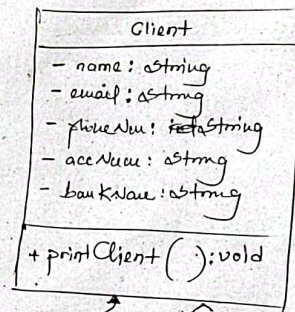 Client
- name: String
- email: String
- phoneNum: String
- accNum: String
- bankName: String
+ printClient ( ): void